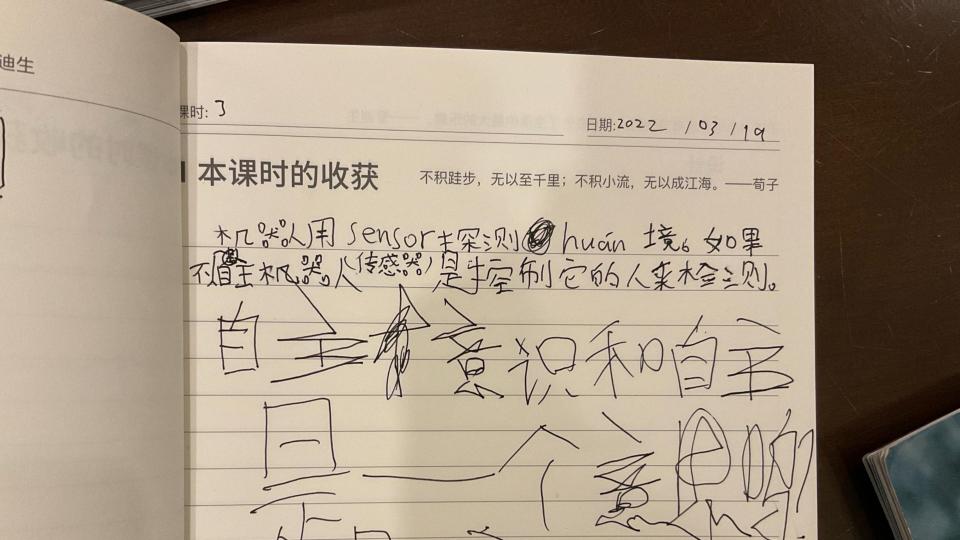 迪生
课时: 3
日期: 2022 / 03 / 19
本课时的收获
不积跬步，无以至千里；不积小流，无以成江海。——荀子
机器人用 sensor 探测 huán 境。如果
不自主机器人(传感器)是控制它的人来检测。
自主意识和自主
是一个意思吗